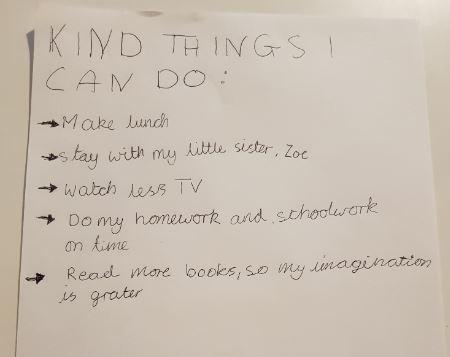 KIND THINGS I
CAN DO:
→ Make lunch
→ stay with my little sister, Zoe
→ Watch less TV
→ Do my homework and schoolwork
on time
→ Read more books, so my imagination
is grater